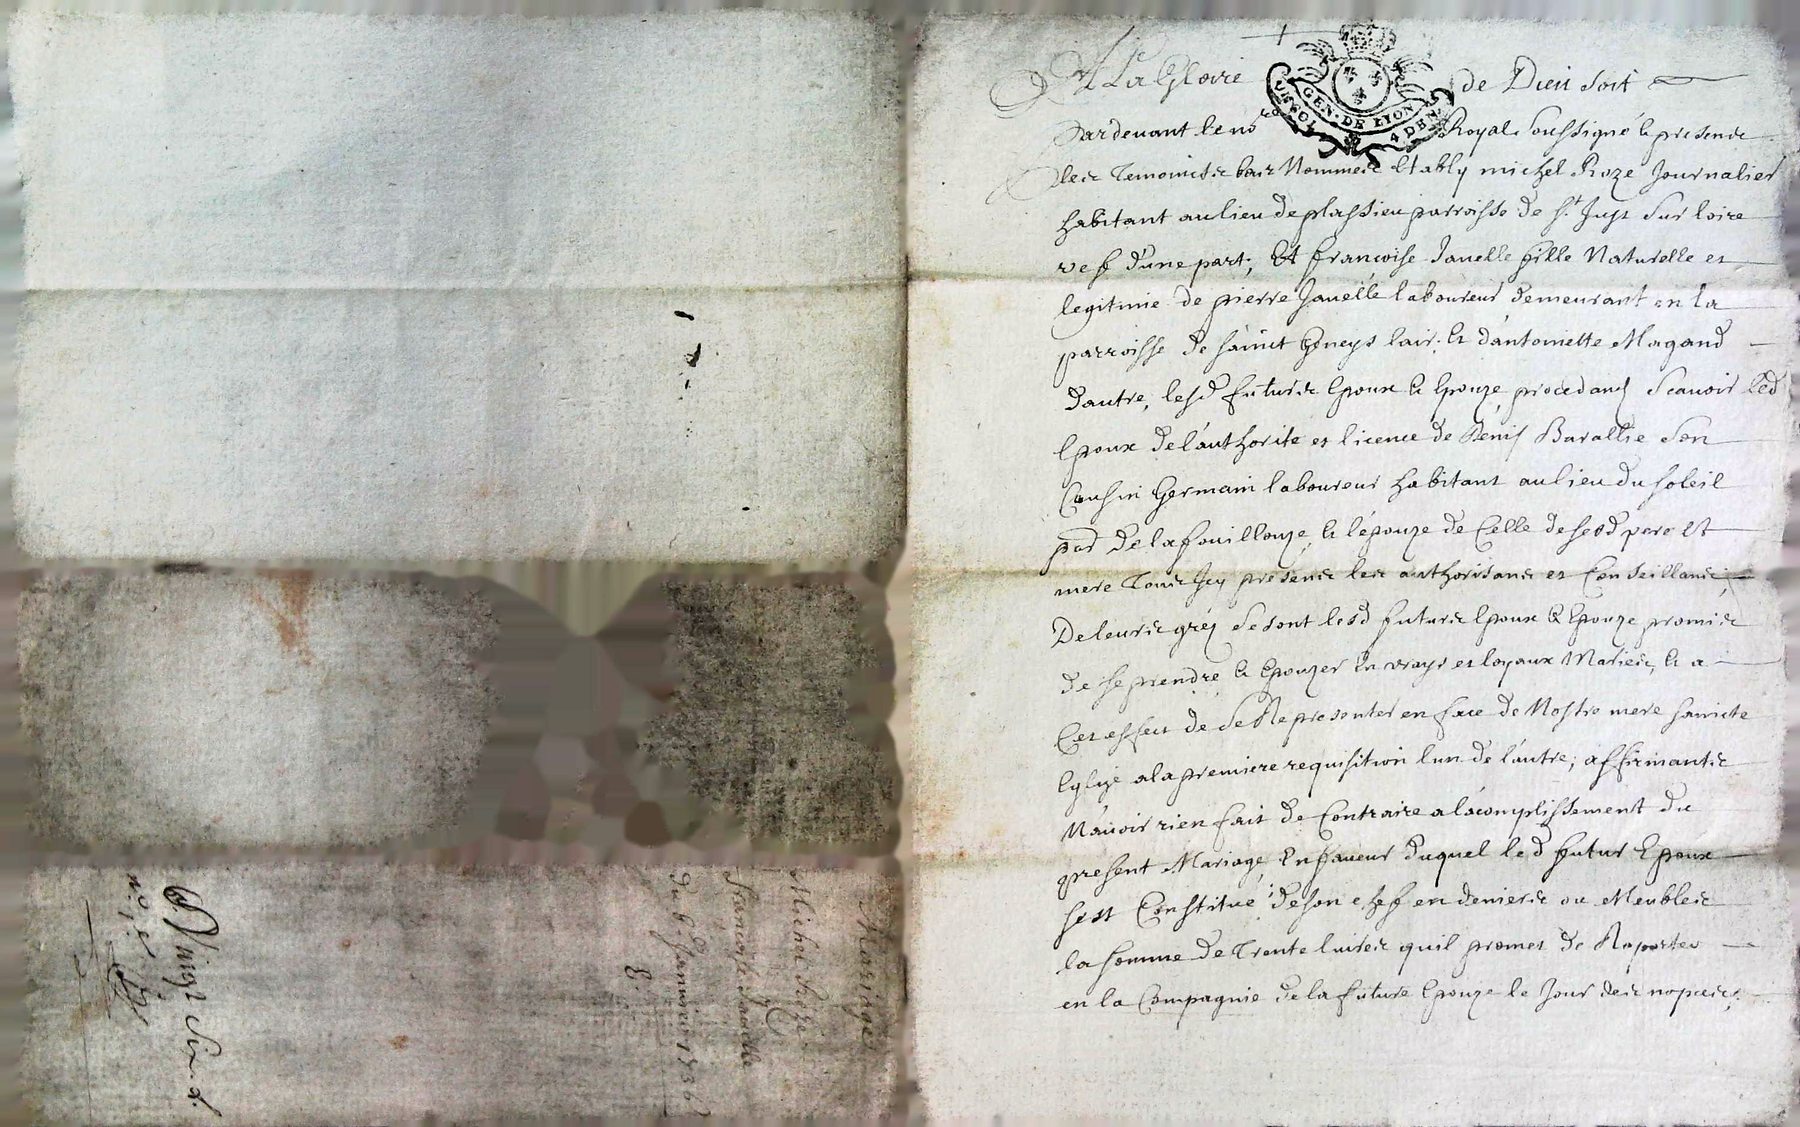 A La Gloire de Dieu soit
GEN · DE LION
4 DEN
Pardevant le no.re Royal soussigné & presents
les temoins bas Nommes Etably michel Roze Journalier
habitant au lieu de plassieu parroisse de st Just sur loire
vef d'une part; Et francoise Janelle fille Naturelle et
legitime de pierre Janelle laboureur demeurant en la
parroisse de sainct Geneys lair, & d'antoinette Magand
d'autre, lesd futurs Epoux & Epouze procedand Scavoir led
Epoux de l'authorite et licence de Denis Barallie son
Cousin Germain laboureur habitant au lieu du soleil
pad de la fouillouze, & l'épouze de Celle de sesd pere et
mere Tous Icy presents les authorisans et Conseillans;
De leurs gréz se sont lesd futurs Epoux & Epouze promis
de se prendre & Epouzer En vrays et loyaux Maries, & a
Cet effect de se Representer en face de Nostre mere saincte
Eglize a la premiere requisition l'un de l'autre; affirmants
N'auoir rien fait de Contraire a l'acomplissement du
present Mariage, En faueur duquel led futur Epoux
sest Constitué de son chef en deniers ou Meubles
la somme de Trente liures quil promet de Raporter
en la Compagnie de la future Epouze le Jour des nopces;
Mariage
Michel Roze
francoise Janelle
du 6 Januier 1736
8
Vingt Six s.